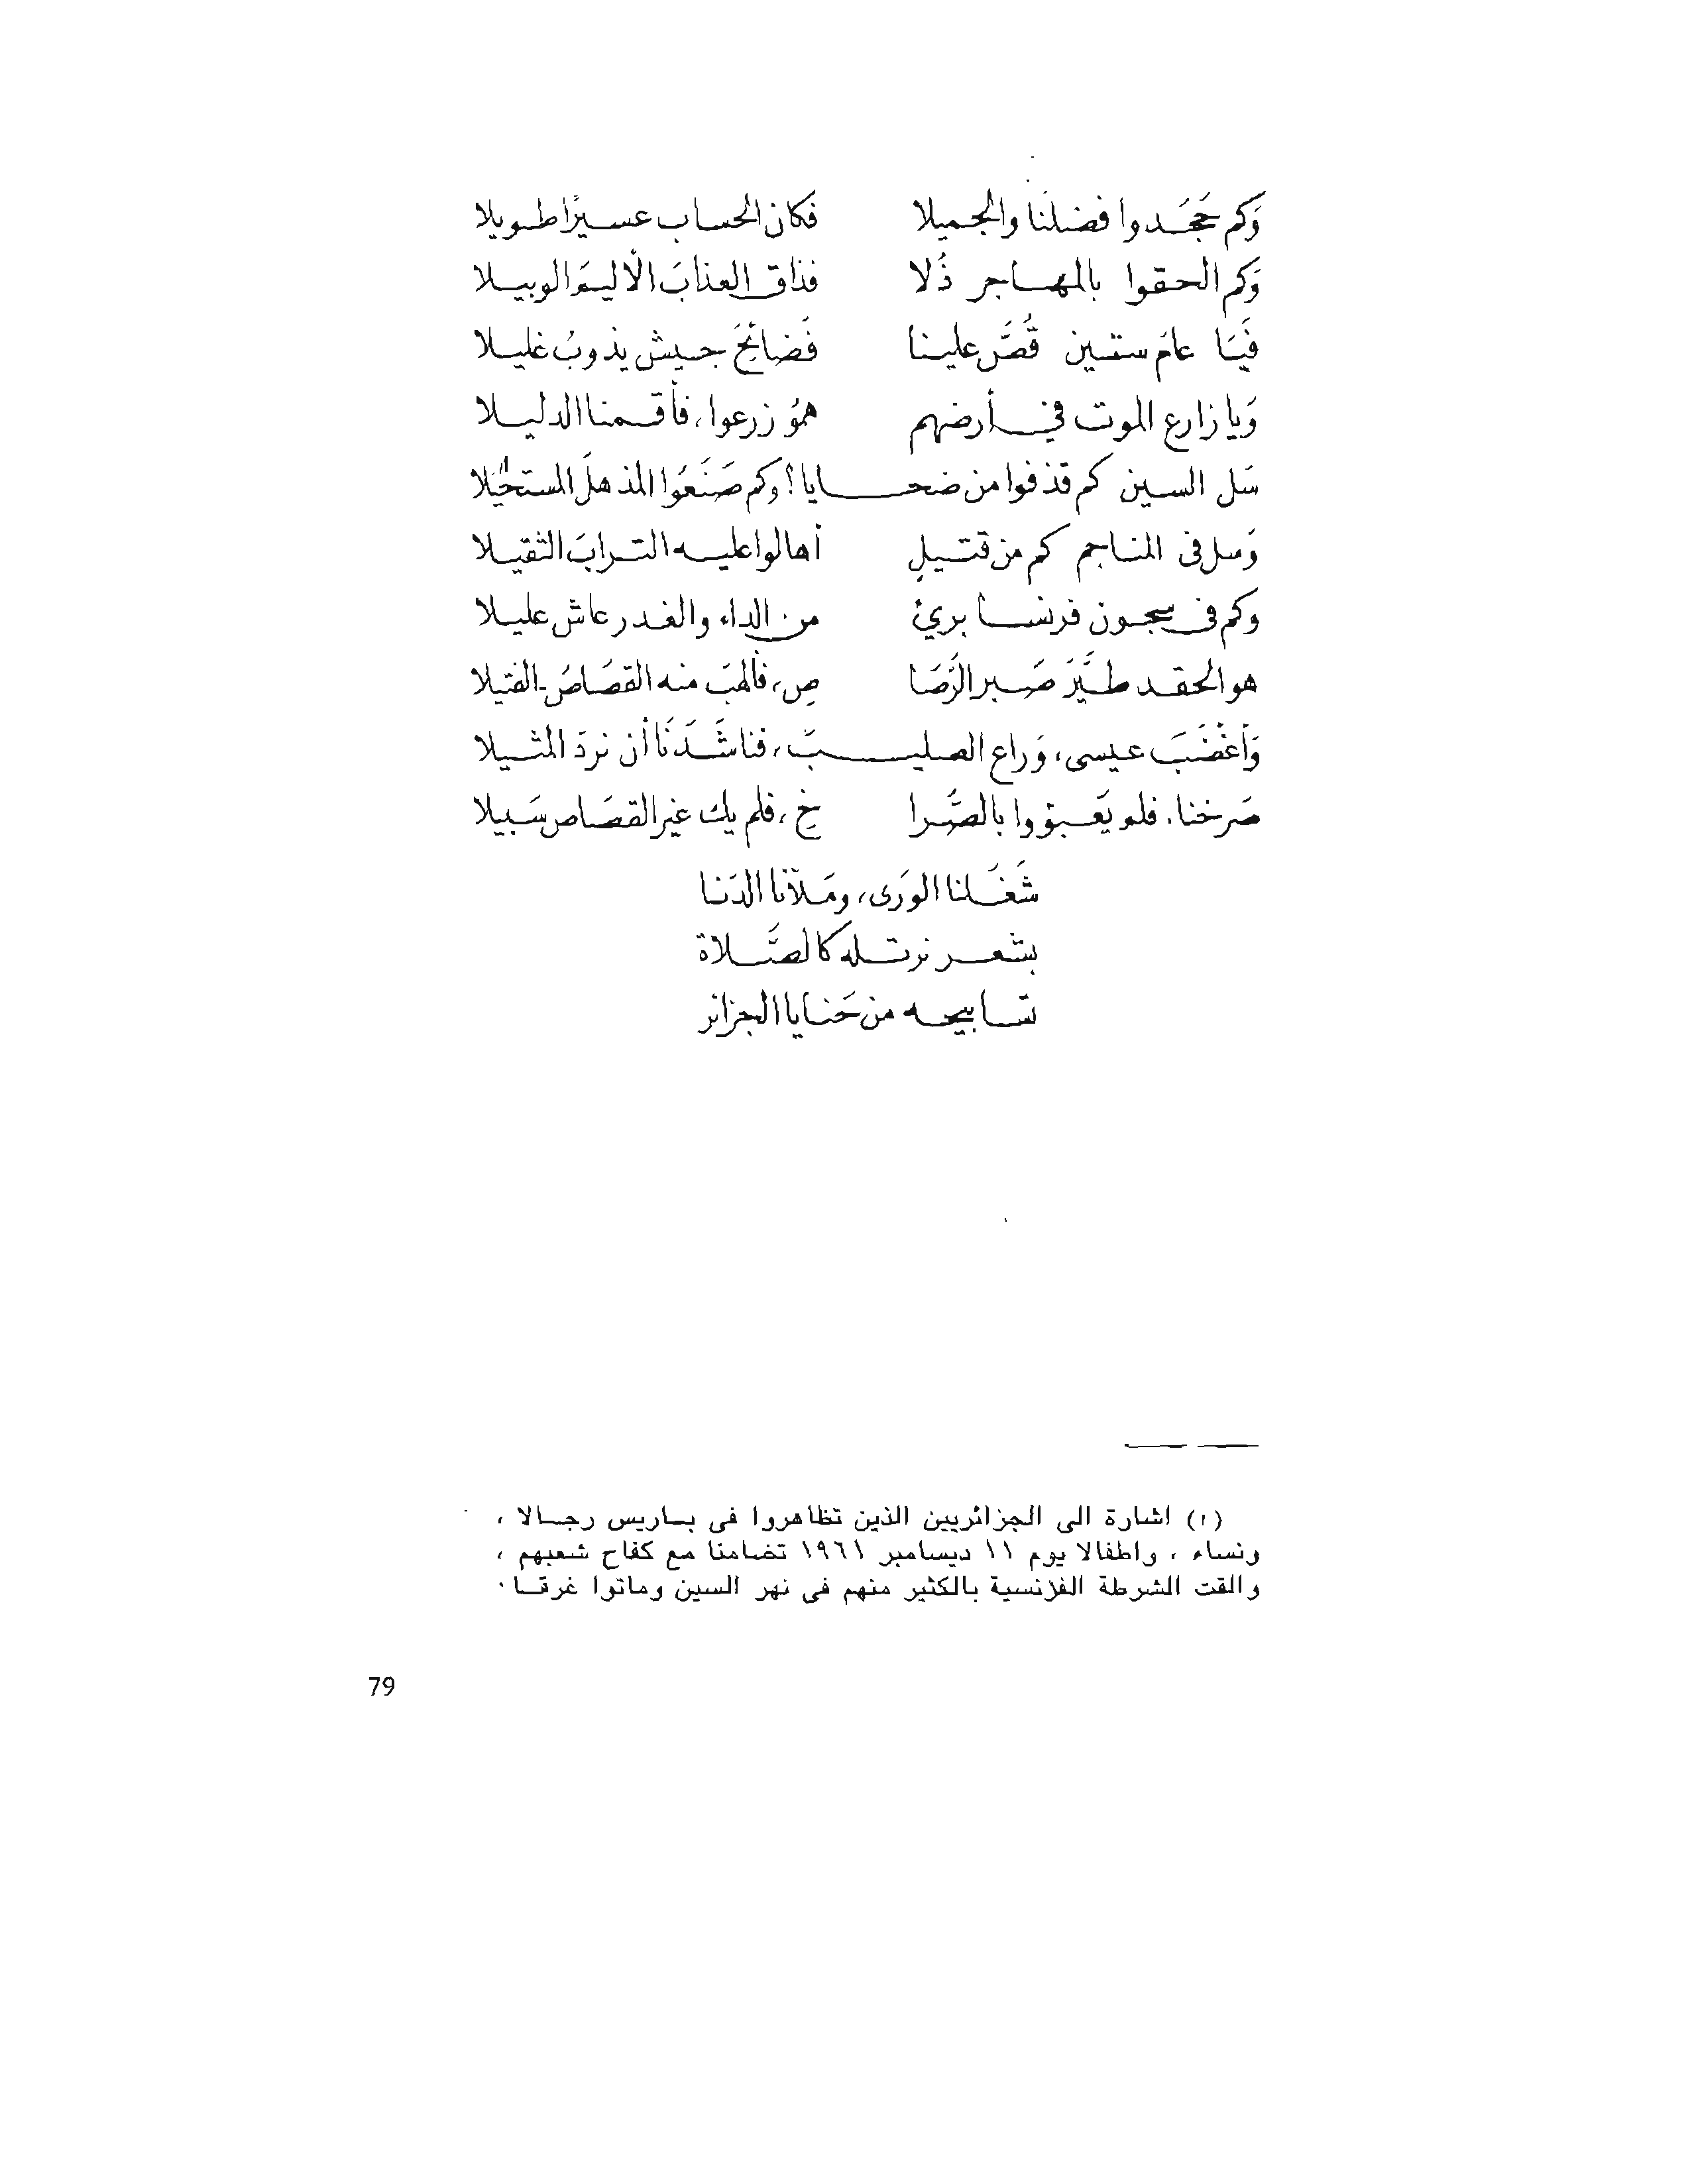 وَكم جَحَدوا فضلَنا والجميلا فكان الحساب عسيرًا طويلا
وَكم الحقوا بالمهاجر ذُلا فذاق العذابَ الأليمَ الوبيلا
فَيَا عامَ ستين قُصَّ علينا فَضائحَ جيش يذوبُ غليلا
وَيا زارع الموت في أرضهم همُو زرعوا، فأقمنا الدليلا
سَل السين كم قذفوا من ضحايا؟ وكم صَنَعُوا المذهلَ المستحيلا (١)
وَسل في المناجم كم من قتيلٍ أهالوا عليه الترابَ الثقيلا
وكم في سجون فرنسا بريئ من الداء والغدر عاش عليلا
هو الحقد طيَّرَ صَبر الرَّصَا صِ، فألهبَ منه القصَاصُ الفتيلا
وَأغْضَبَ عيسى، وَراع الصليبَ، فناشَدَنَا أن نردَ المثيلا
صَرخنا. فلم يَعبؤوا بالصُّرا خِ، فلم يك غير القصَاص سَبيلا
شَغَلنا الورَى، ومَلأنا الدَنا
بشعر نرتله كالصَّلاة
تسَابيحه من حَنايا الجزائر
(١) اشارة الى الجزائريين الذين تظاهروا فى بباريس رجالا ،
ونساء ، واطفالا يوم ١١ ديسامبر ١٩٦١ تضامنا مع كفاح شعبهم ،
والقت الشرطة الفرنسية بالكثير منهم فى نهر السين وماتوا غرقا ٠
79